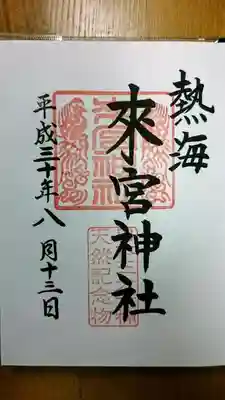 熱海
來宮神社
平成三十年八月十三日
天然記念物